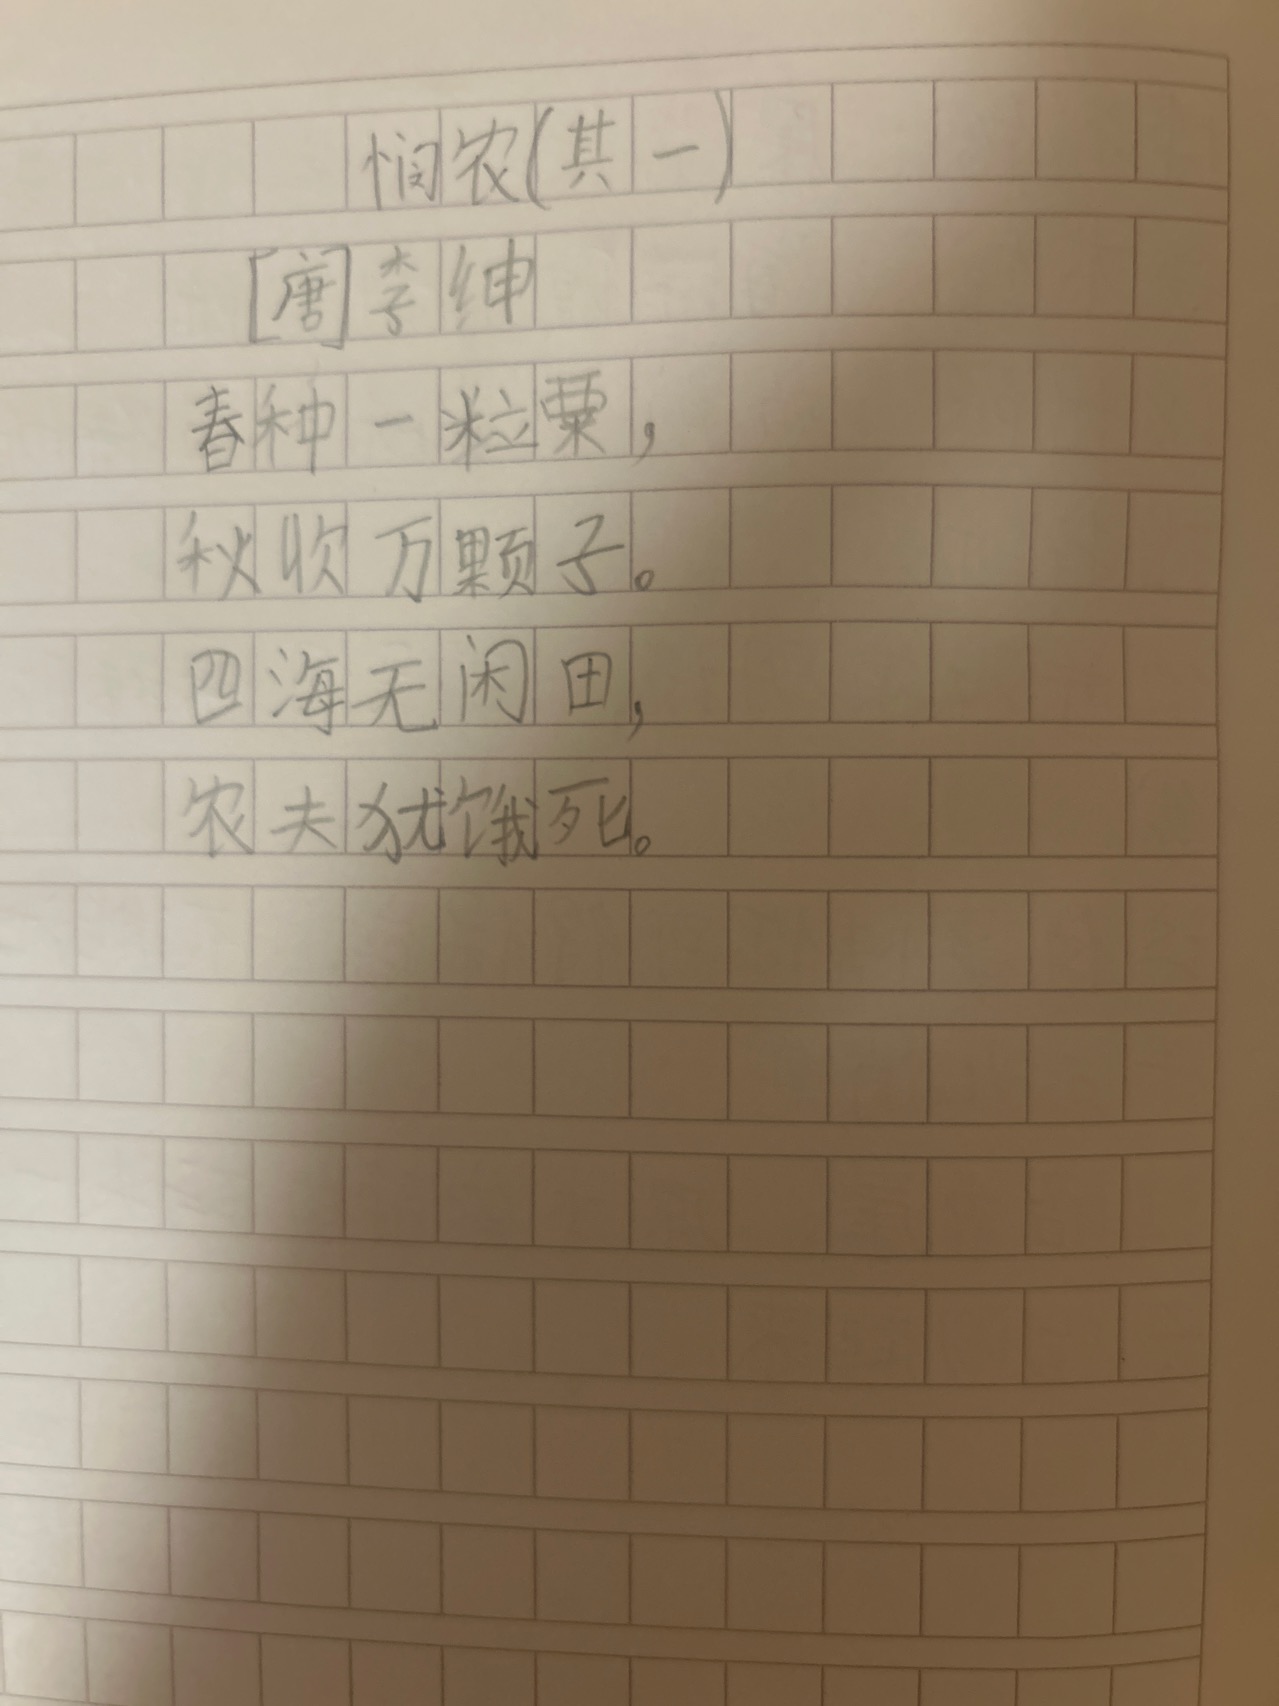 悯农(其一)
[唐]李绅
春种一粒粟,
秋收万颗子。
四海无闲田,
农夫犹饿死。